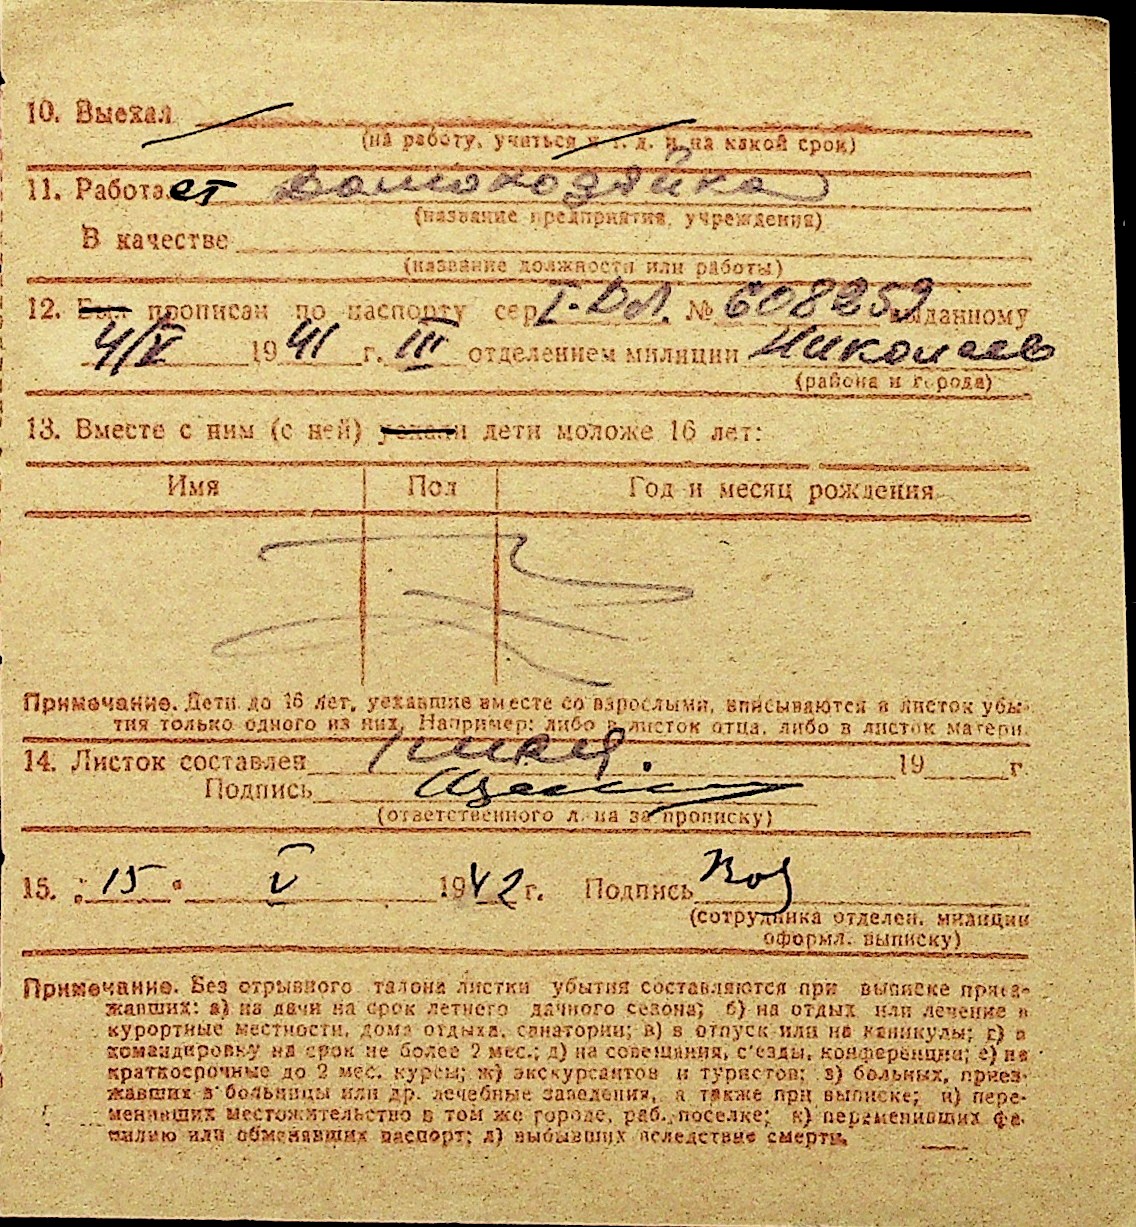 10. Выехал
(на работу, учиться и т. д. и на какой срок)
11. Работает домохозяйка
(название предприятия, учреждения)
В качестве
(название должности или работы)
12. Был прописан по паспорту сер № 608252 выданному
4/V 1941 г. III отделением милиции Николаев
(района и города)
13. Вместе с ним (с ней) уехали дети моложе 16 лет:
Имя Пол Год и месяц рождения
Примечание. Дети до 16 лет, уехавшие вместе со взрослыми, вписываются в листок убы-
тия только одного из них. Например: либо в листок отца, либо в листок матери.
14. Листок составлен 19 г
Подпись
(ответственного л. на за прописку)
15. „15" V 1942 г. Подпись
(сотрудника отделен. милиции
оформл. выписку)
Примечание. Без отрывного талона листки убытия составляются при выписке приез-
жавших: а) на дачи на срок летнего дачного сезона; б) на отдых или лечение в
курортные местности, дома отдыха, санатории; в) в отпуск или на каникулы; г) в
командировку на срок не более 2 мес.; д) на совещания, с'езды, конференции; е) на
краткосрочные до 2 мес. курсы; ж) экскурсантов и туристов; з) больных, приез-
жавших в больницы или др. лечебные заведения, а также при выписке; и) пере-
менивших местожительство в том же городе, раб. поселке; к) переменивших фа-
милию или обменявших паспорт; л) выбывших вследствие смерти.